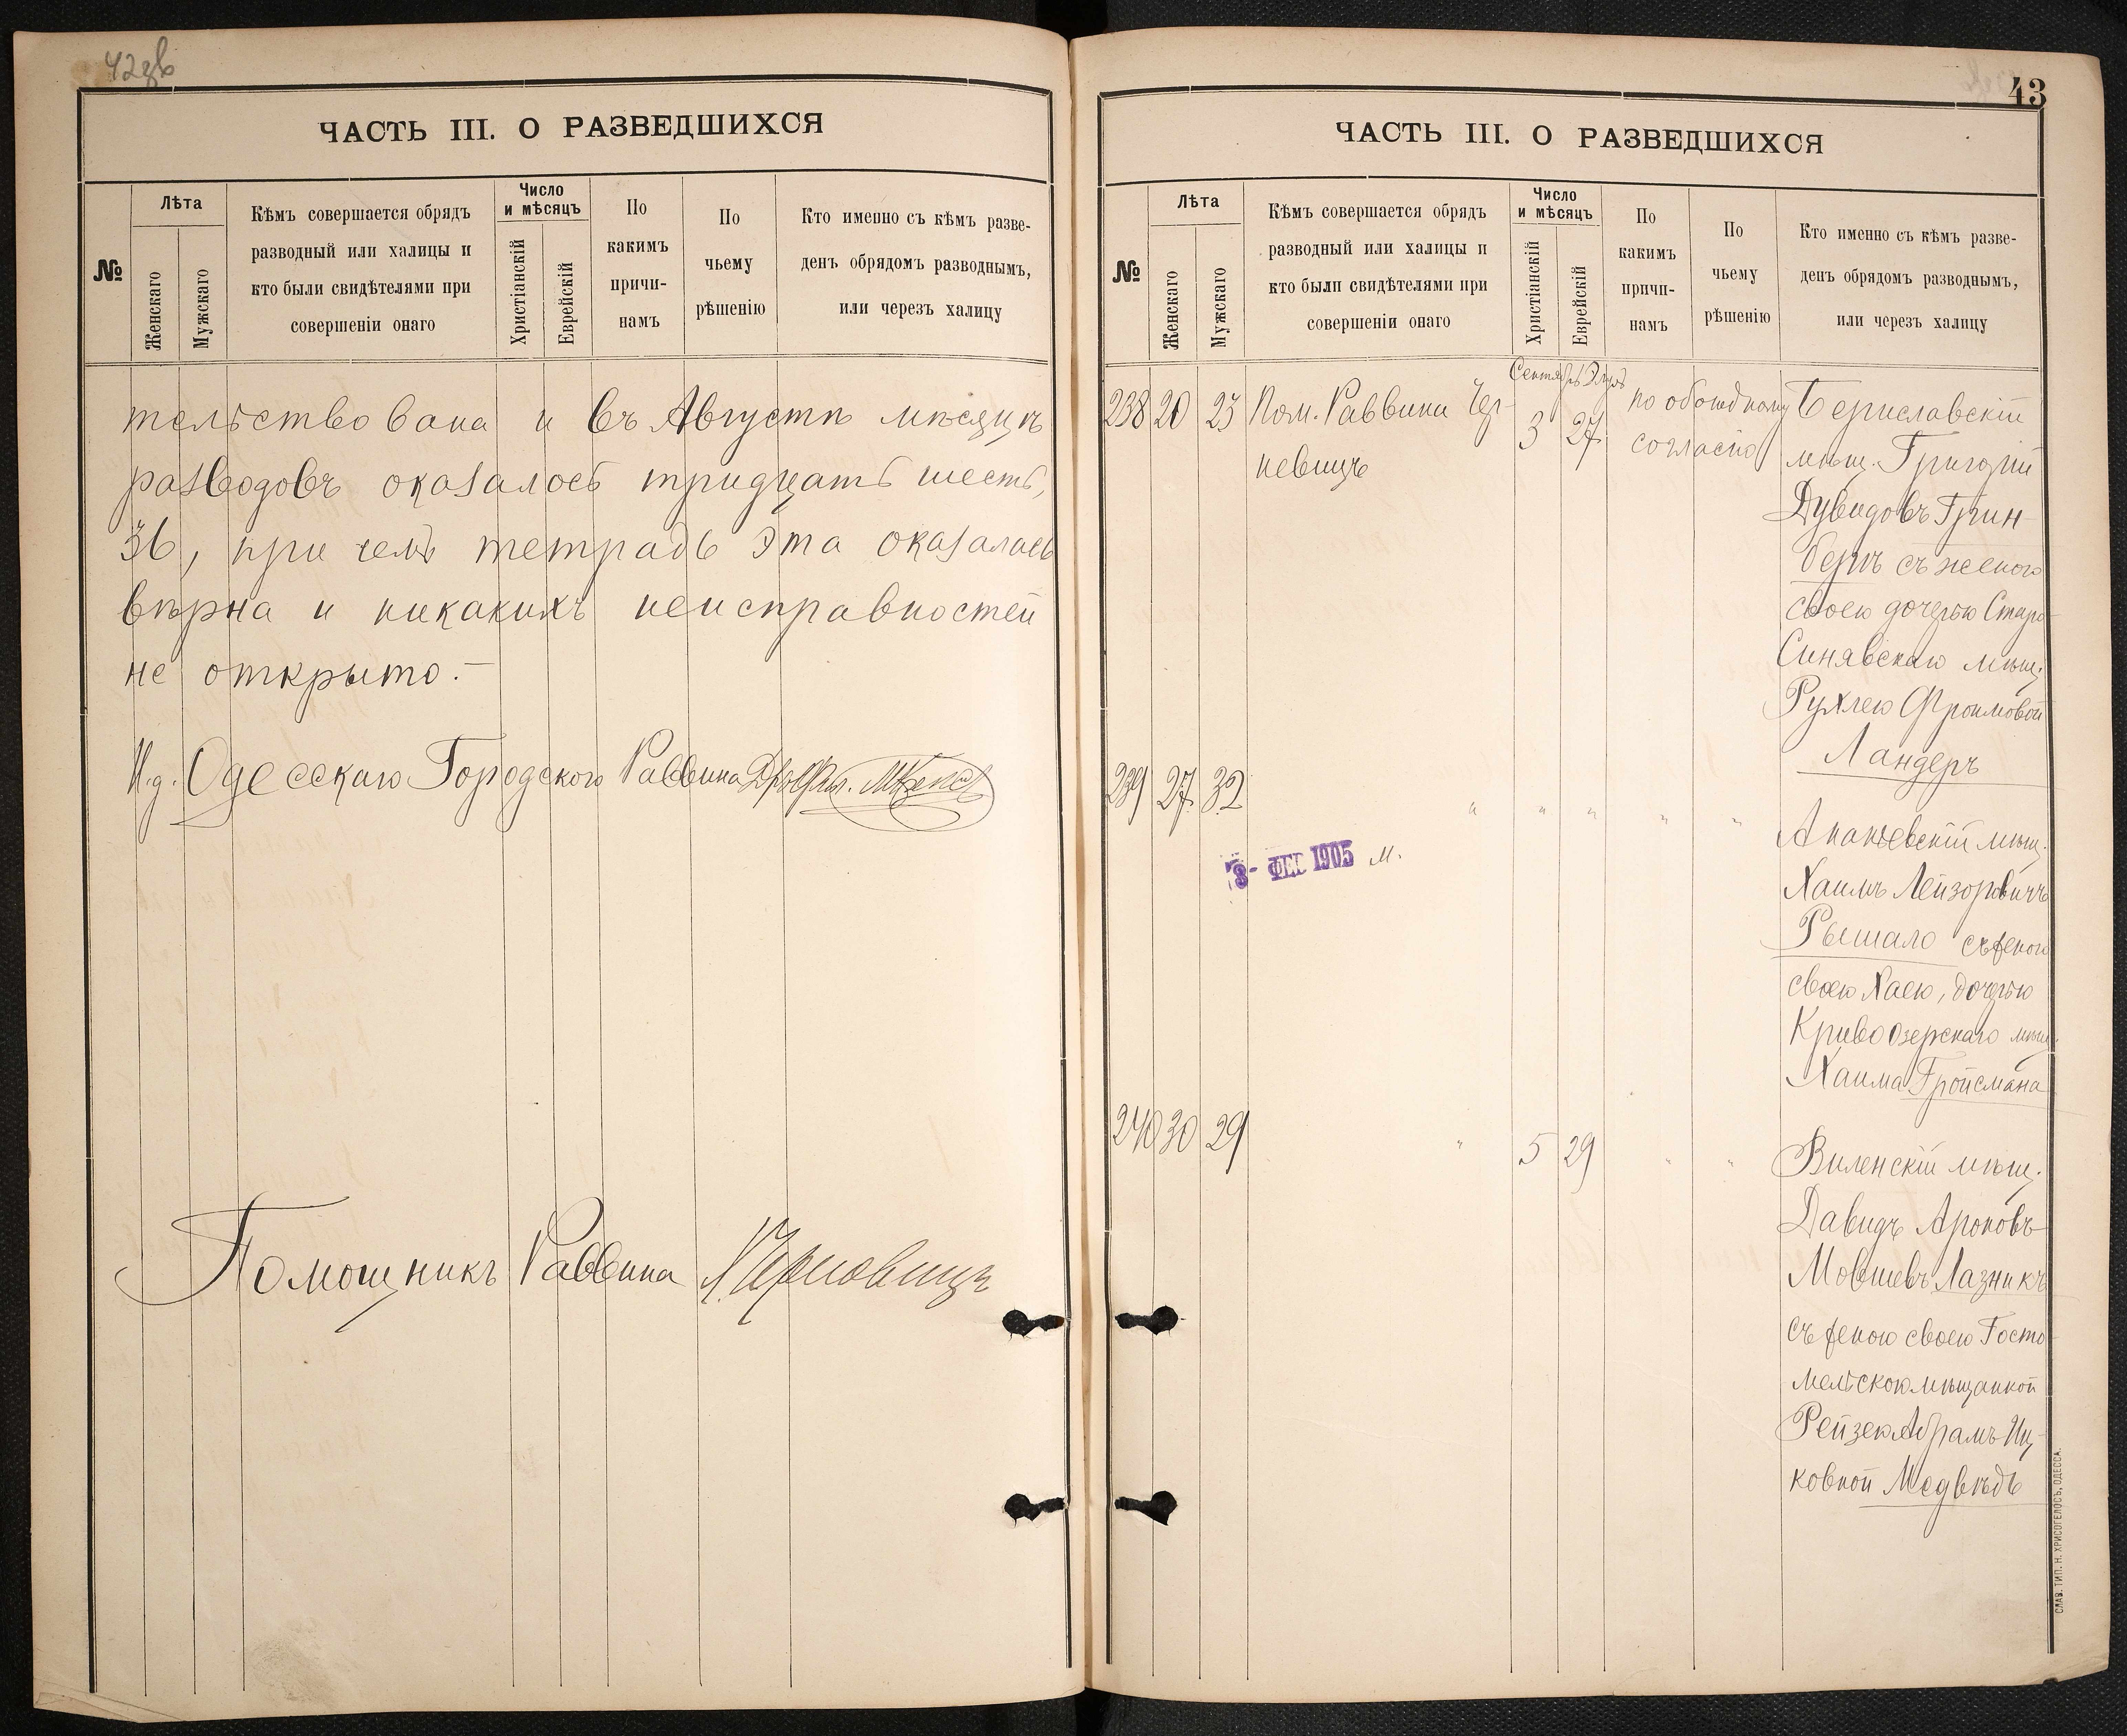 42
ЧАСТЬ III. О РАЗВЕДШИХСЯ
№
Лѣта
Женскаго
Мужскаго
Кѣмъ совершается обрядъ
разводный или халицы и
кто были свидѣтелями при
совершеніи онаго
Число
и мѣсяцъ
Христіанскій
Еврейскій
По
какимъ
причи-
намъ
По
чьему
рѣшенію
Кто именно съ кѣмъ разве-
денъ обрядомъ разводнымъ,
или черезъ халицу
тельствована и въ Августѣ мѣсяцѣ
разводовъ оказалось тридцать шесть,
36, при чемъ тетрадь эта оказалась
вѣрна и никакихъ неисправностей
не открыто.—
И.д. Одесскаго Городского Раввина
Помощникъ Раввина Черновицъ
43
ЧАСТЬ III. О РАЗВЕДШИХСЯ
№
Лѣта
Женскаго
Мужскаго
Кѣмъ совершается обрядъ
разводный или халицы и
кто были свидѣтелями при
совершеніи онаго
Число
и мѣсяцъ
Христіанскій
Еврейскій
По
какимъ
причи-
намъ
По
чьему
рѣшенію
Кто именно съ кѣмъ разве-
денъ обрядомъ разводнымъ,
или черезъ халицу
Сентябрь Элулъ
238 20 23 Пом. Раввина Чер-
невицъ
3 27 по обоюдному
согласію
Бериславскій
мѣщ. Григорій
Дувидовъ Грин-
бергъ съ женою
своею дочерью Старо-
Синявскаго мѣщ.
Рухлею Фроимовой
Ландеръ
239 27 32 " " " " "
Ананьевскій мѣщ.
Хаимъ Лейзоровичъ
Рышало съ женою
своею Хаею, дочерью
Кривоозерскаго мѣщ.
Хаима Гройсмана
3- ФЕВ 1905 м.
240 30 29 " 5 29 " "
Виленскій мѣщ.
Давидъ Ароновъ
Мовшевъ Лазникъ
съ женою своею Госто-
мельскою мѣщанкой
Рейзею Абрамъ Иц-
ковной Медвѣдь
СЛАВ. ТИП. Н. ХРИСОГЕЛОСЪ, ОДЕССА.